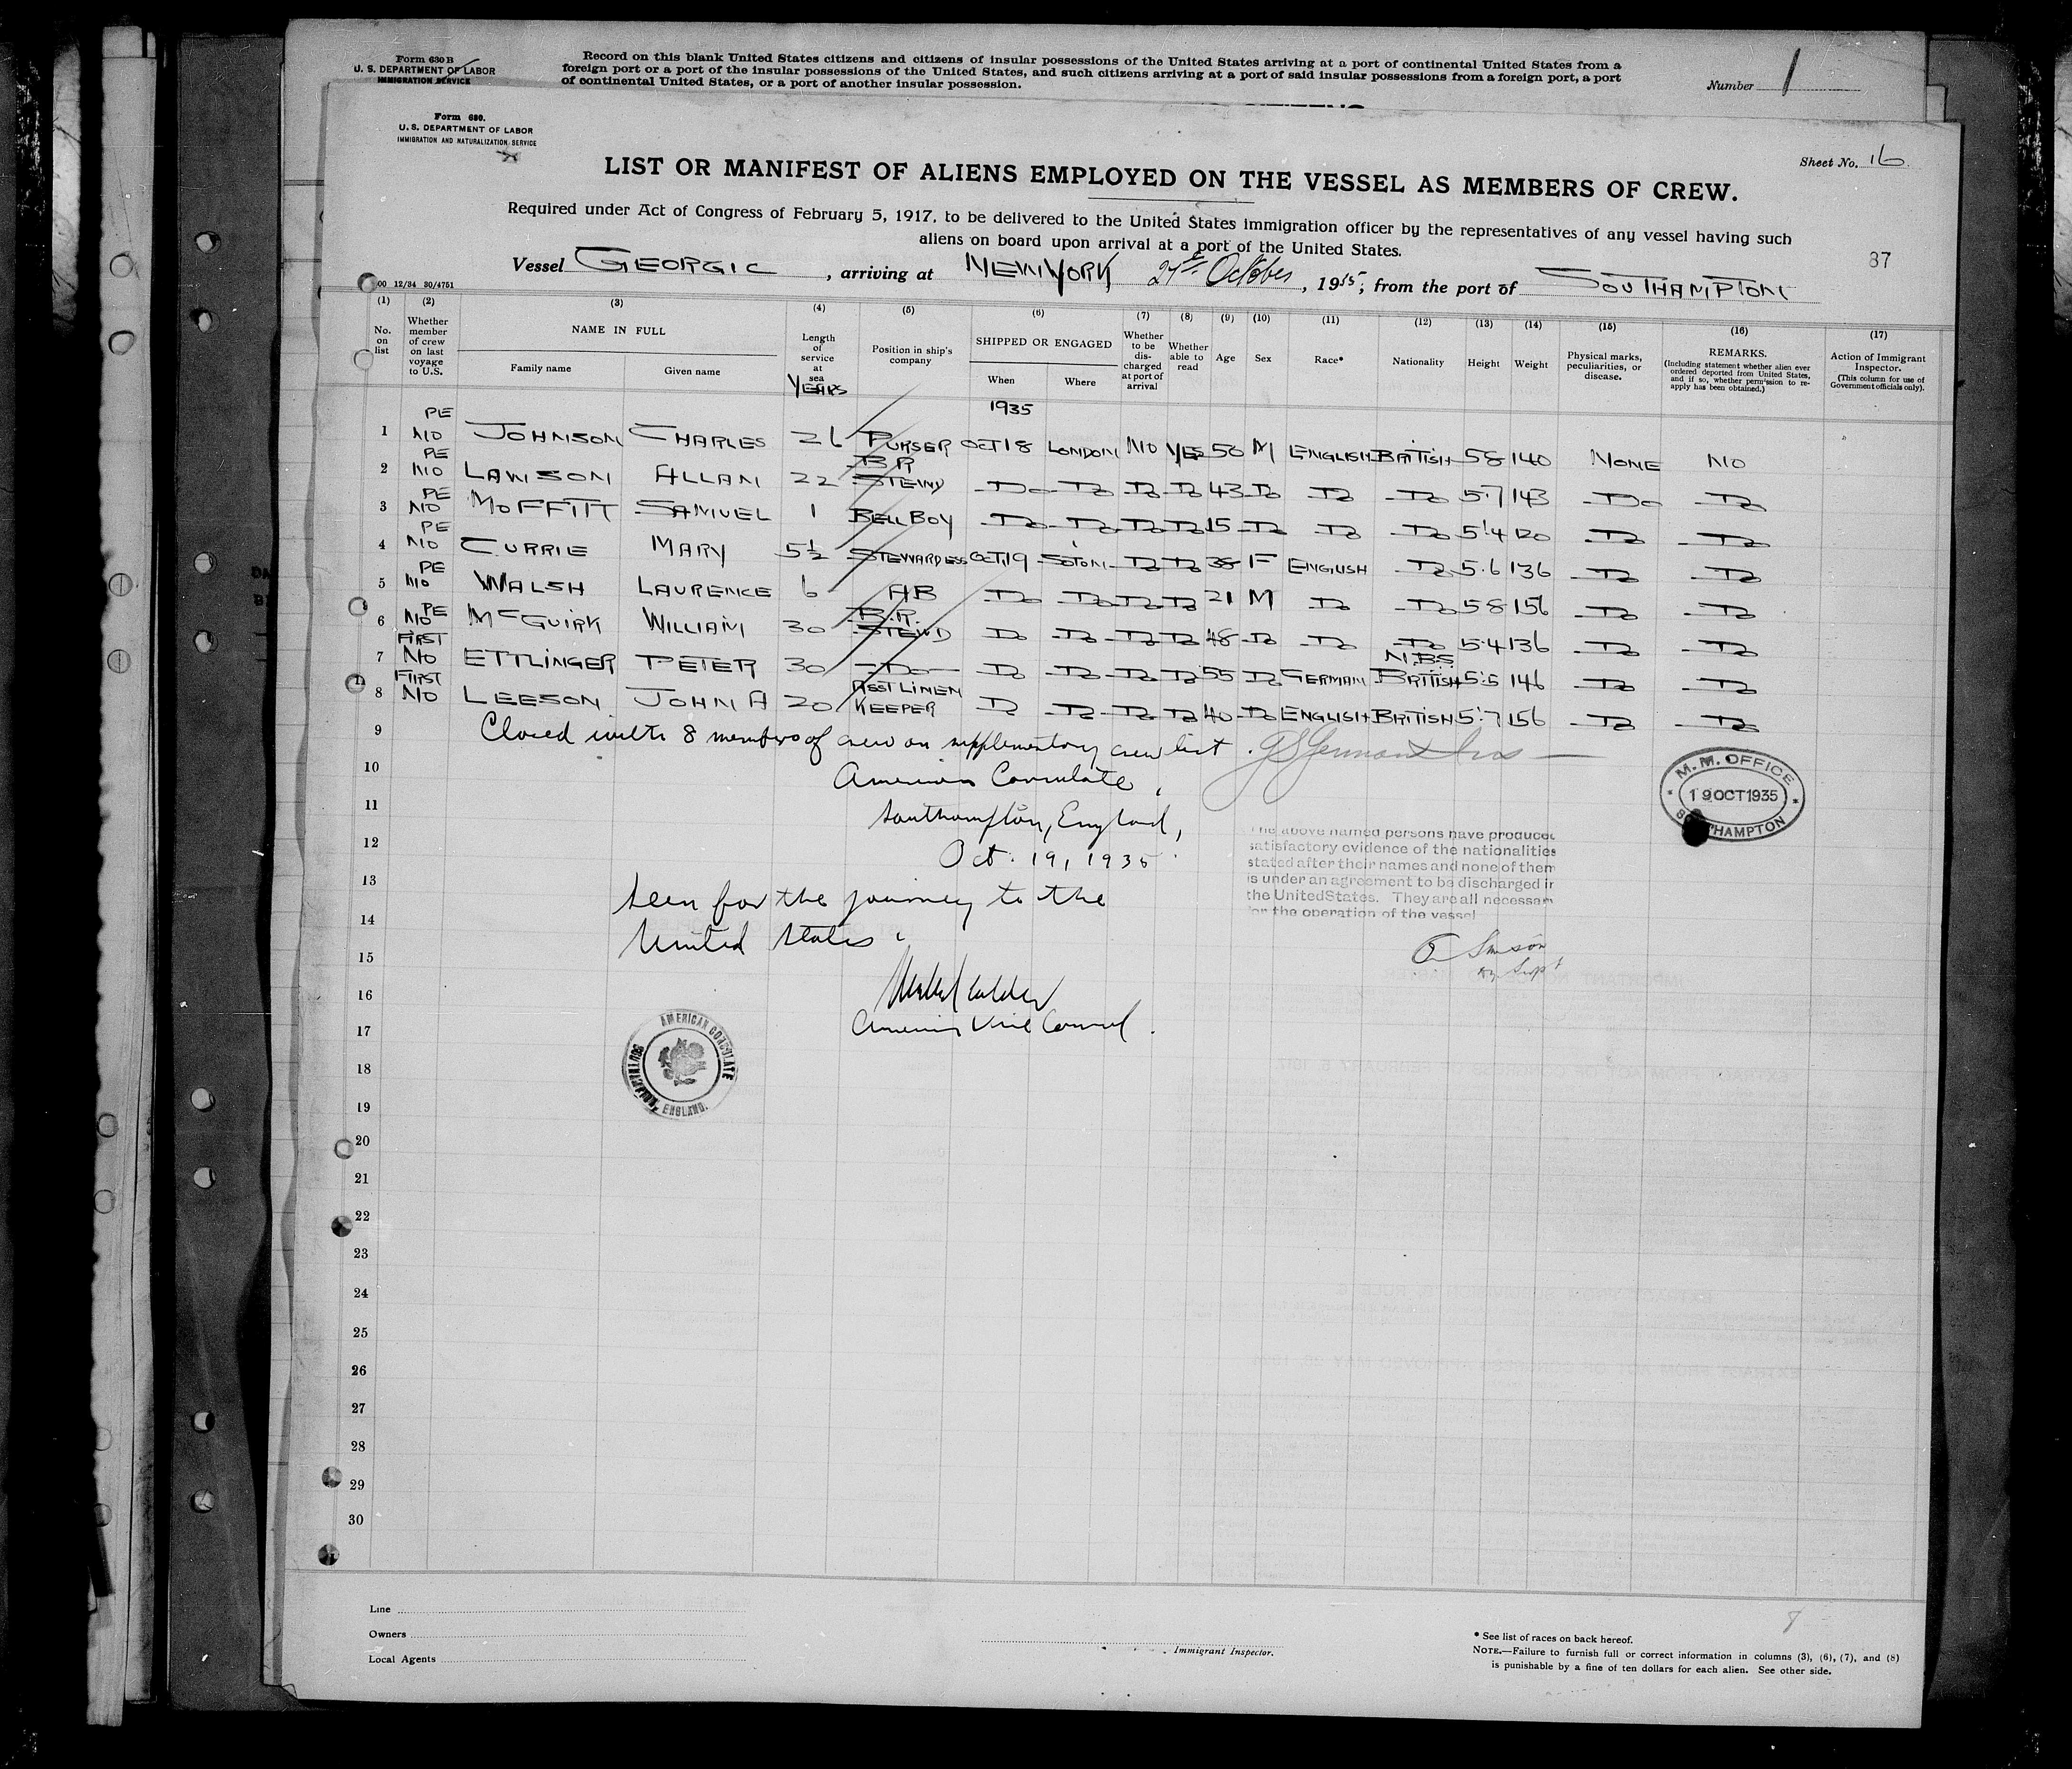 Form 630 B
U. S. DEPARTMENT OF LABOR
IMMIGRATION SERVICE
Record on this blank United States citizens and citizens of insular possessions of the United States arriving at a port of continental United States from a
foreign port or a port of the insular possessions of the United States, and such citizens arriving at a port of said insular possessions from a foreign port, a port
of continental United States, or a port of another insular possession.
Number 1
Form 630.
U. S. DEPARTMENT OF LABOR
IMMIGRATION AND NATURALIZATION SERVICE
Sheet No. 16
LIST OR MANIFEST OF ALIENS EMPLOYED ON THE VESSEL AS MEMBERS OF CREW.
Required under Act of Congress of February 5, 1917, to be delivered to the United States immigration officer by the representatives of any vessel having such
aliens on board upon arrival at a port of the United States.
87
Vessel GEORGIC, arriving at NEW YORK, October, 1935, from the port of SOUTHAMPTON
00 12/34 30/4751
(1) (2) (3) (4) (5) (6) (7) (8) (9) (10) (11) (12) (13) (14) (15) (16) (17)
No. on list
Whether member of crew on last voyage to U.S.
NAME IN FULL
Family name Given name
Length of service at sea
YEARS
Position in ship's company
SHIPPED OR ENGAGED
When Where
Whether to be discharged at port of arrival
Whether able to read
Age
Sex
Race*
Nationality
Height
Weight
Physical marks, peculiarities, or disease.
REMARKS.
(Including statement whether alien ever ordered deported from United States, and if so, whether permission to re-apply has been obtained.)
Action of Immigrant Inspector.
(This column for use of Government officials only).
1935
1 PE NO JOHNSON CHARLES 26 PURSER OCT 18 LONDON NO YES 50 M ENGLISH BRITISH 5 8 140 NONE NO
2 PE NO LAWSON ALLAN 22 B R STEWD Do Do Do Do 43 Do Do Do 5·7 143 Do Do
3 PE NO MOFFITT SAMUEL 1 BELL BOY Do Do Do Do 15 Do Do Do 5'4 120 Do Do
4 PE NO CURRIE MARY 5½ STEWARDESS OCT 19 SOTON Do Do 38 F ENGLISH Do 5·6 136 Do Do
5 PE NO WALSH LAURENCE 6 AB Do Do Do Do 21 M Do Do 5 8 156 Do Do
6 PE NO McGUIRK WILLIAM 30 B.R. STEWD Do Do Do Do 48 Do Do Do 5·4 136 Do Do
7 FIRST NO ETTLINGER PETER 30 Do Do Do Do Do 55 Do GERMAN N.B.S. BRITISH 5'5 146 Do Do
8 FIRST NO LEESON JOHN A 20 ASST LINEN KEEPER Do Do Do Do 40 Do ENGLISH BRITISH 5'7 156 Do Do
9 Closed with 8 members of crew on supplementary crew list.
10 American Consulate,
11 Southampton, England,
12 Oct. 19, 1935
M.M. OFFICE
19 OCT 1935
SOUTHAMPTON
The above named persons have produced
satisfactory evidence of the nationalities
stated after their names and none of them
is under an agreement to be discharged in
the United States. They are all necessary
for the operation of the vessel
13 Seen for the journey to the
14 United States.
15
16
17 American Vice Consul.
AMERICAN CONSULATE
SOUTHAMPTON, ENGLAND.
18
19
20
21
22
23
24
25
26
27
28
29
30
Line
Owners
Local Agents
Immigrant Inspector.
* See list of races on back hereof.
NOTE.—Failure to furnish full or correct information in columns (3), (6), (7), and (8)
is punishable by a fine of ten dollars for each alien. See other side.